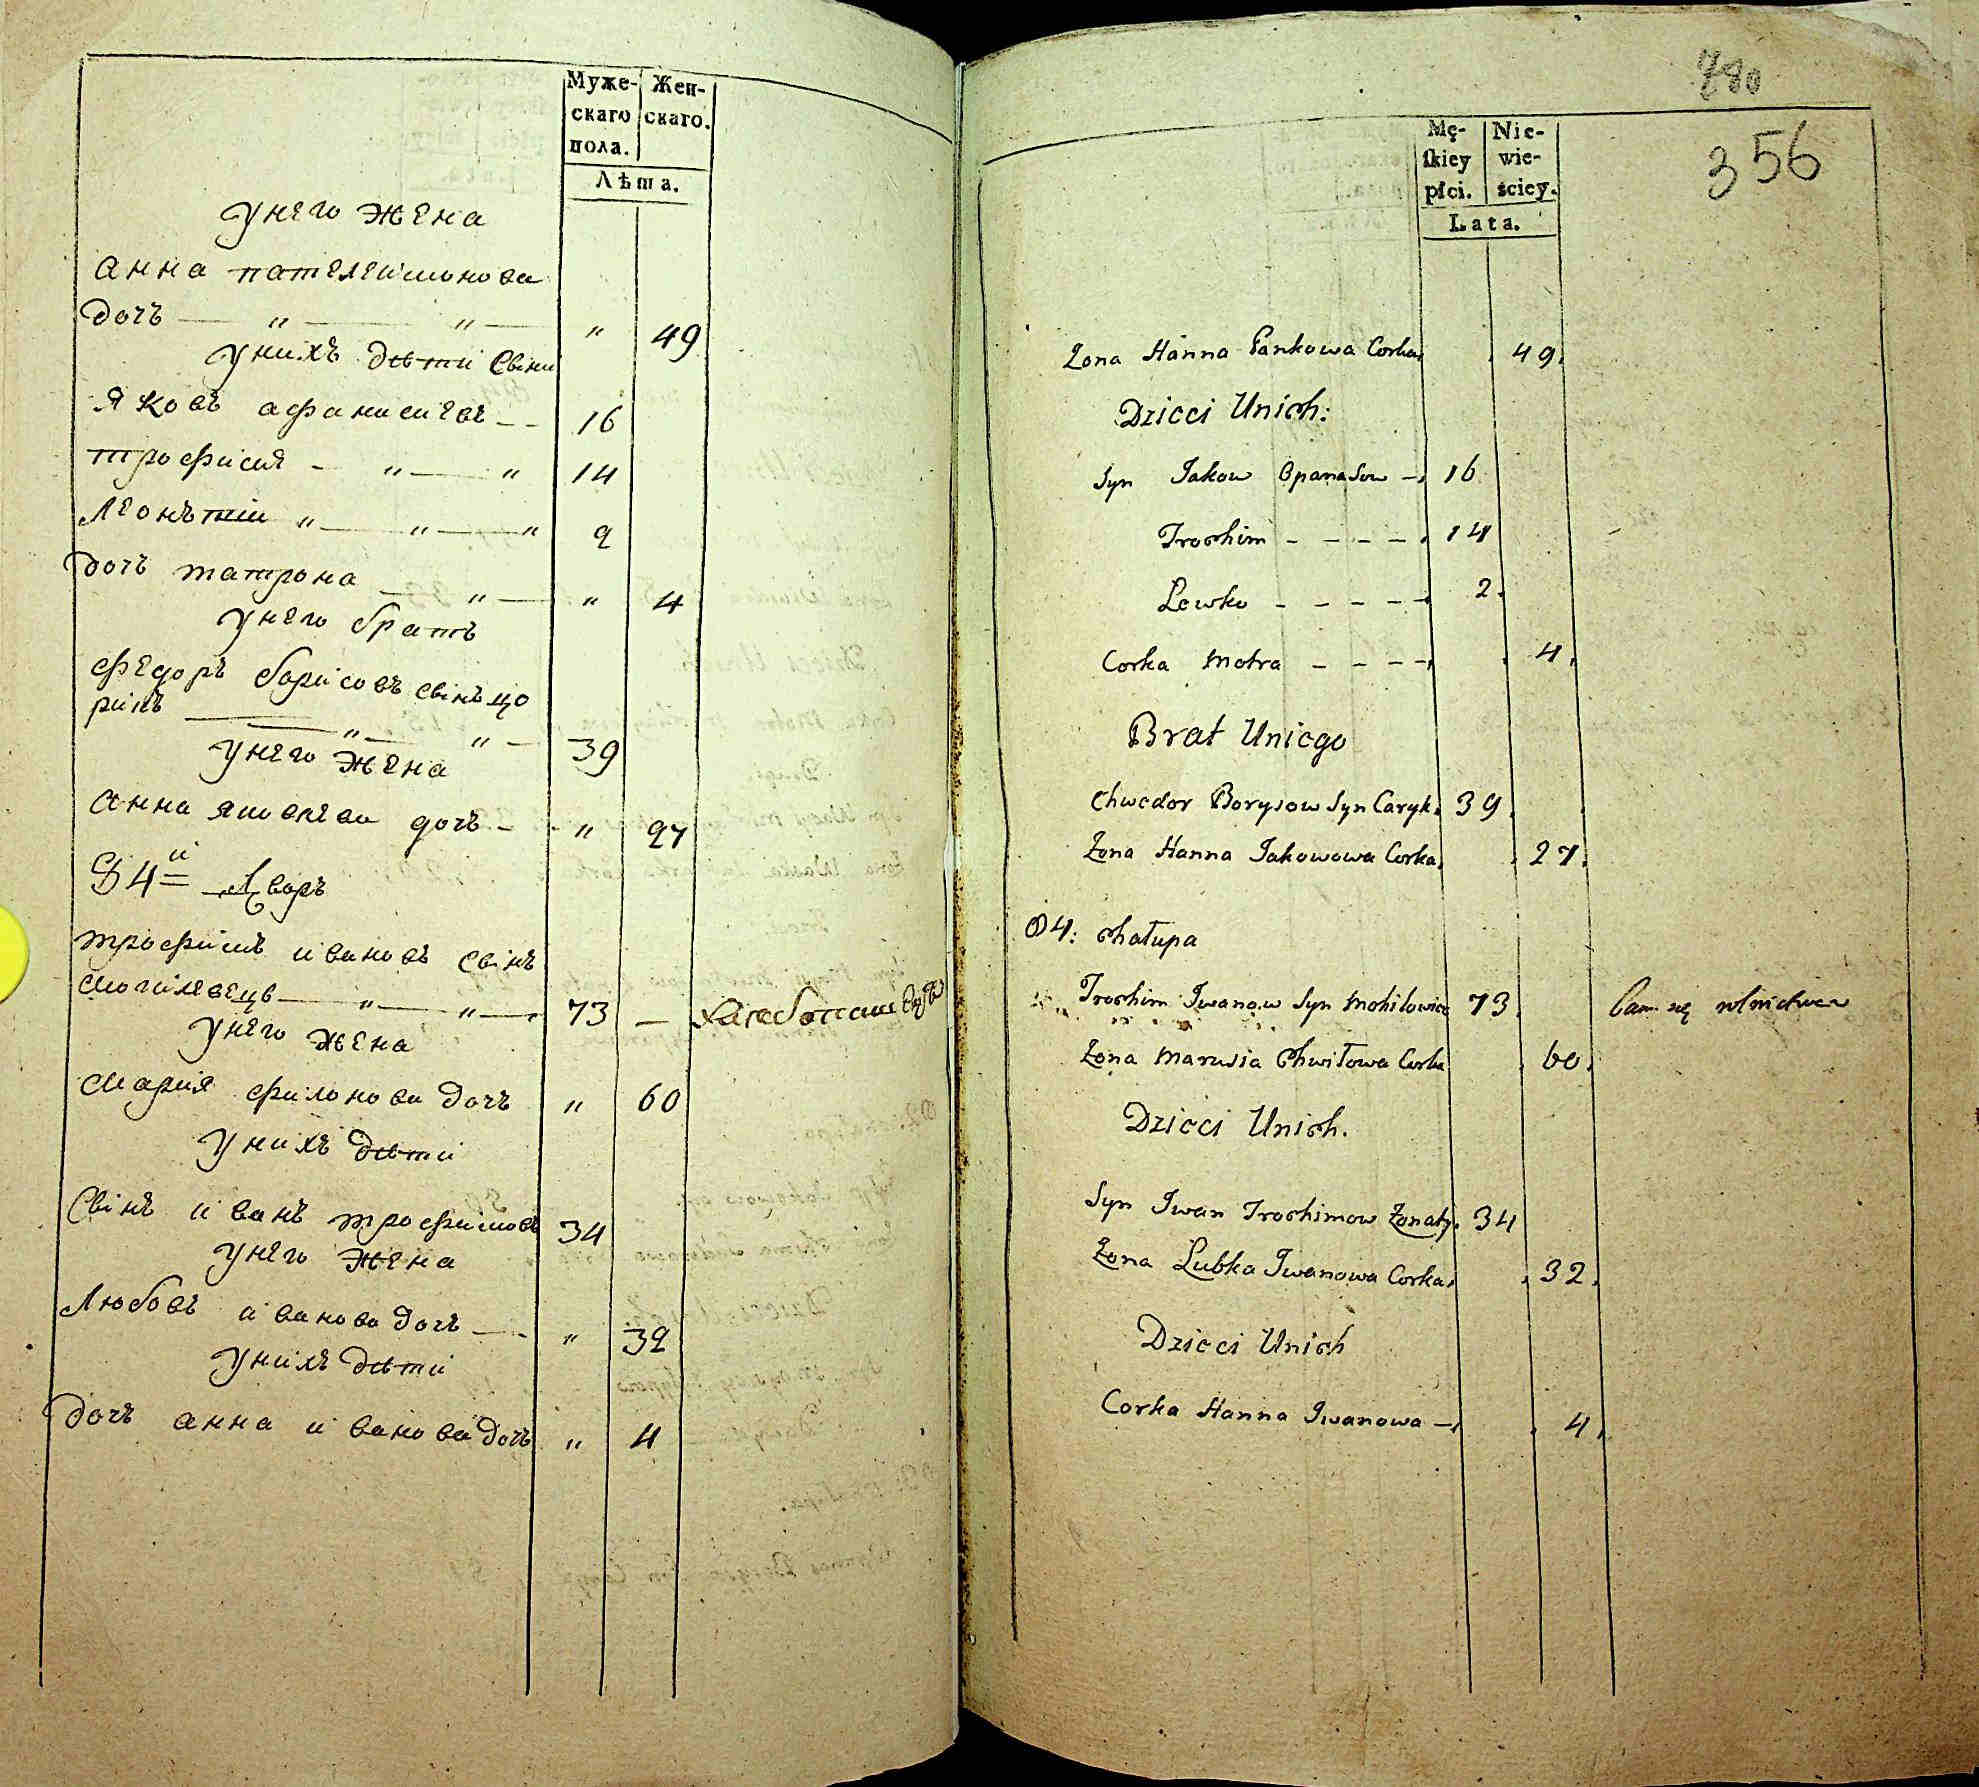 Муже-
скаго
пола.
Жен-
скаго.
Лѣта.
У него жена
анна пателеймонова
дочъ — „ — „ — „ 49
У нихъ дѣти Свіни
Яковъ афанисиевъ — 16
трофисия — „ — „ 14
Леонътии „ — „ — „ 2
дочъ татрона — „ — „ 4
У него братъ
федоръ борисовъ свінъ цо
рикъ — „ — „ — 39
У него жена
анна яковлева дочъ — „ 27
84й Дворъ
трофимъ ивановъ свінъ
могилевецъ — „ — „ — 73 —
У него жена
мария филонова дочъ „ 60
У нихъ дѣти
Свінъ иванъ трофимовъ 34
У него жена
Любовъ иванова дочъ — „ 32
У нихъ дѣти
дочъ анна иванова дочъ „ 4
780
356
Mę-
skiey
płci.
Nie-
wie-
ściey.
Lata.
Żona Hanna Pankowa Corka 49.
Dzieci Unich:
Syn Jakow Opanasow — 16
Trochim - - - - 14
Lewko - - - - - 2.
Corka Motra - - - - 4.
Brat Uniego
Chwedor Borysow Syn Caryk. 39.
Żona Hanna Jakowowa Corka. 27.
84: Chałupa
Trochim Iwanow Syn Mohilowiec 73. bawi się rolnictwem
Żona Marusia Chwiłowa Corka 60.
Dzieci Unich.
Syn Iwan Trochimow Żonaty. 34
Żona Lubka Iwanowa Corka. 32.
Dzieci Unich
Corka Hanna Iwanowa — 4.